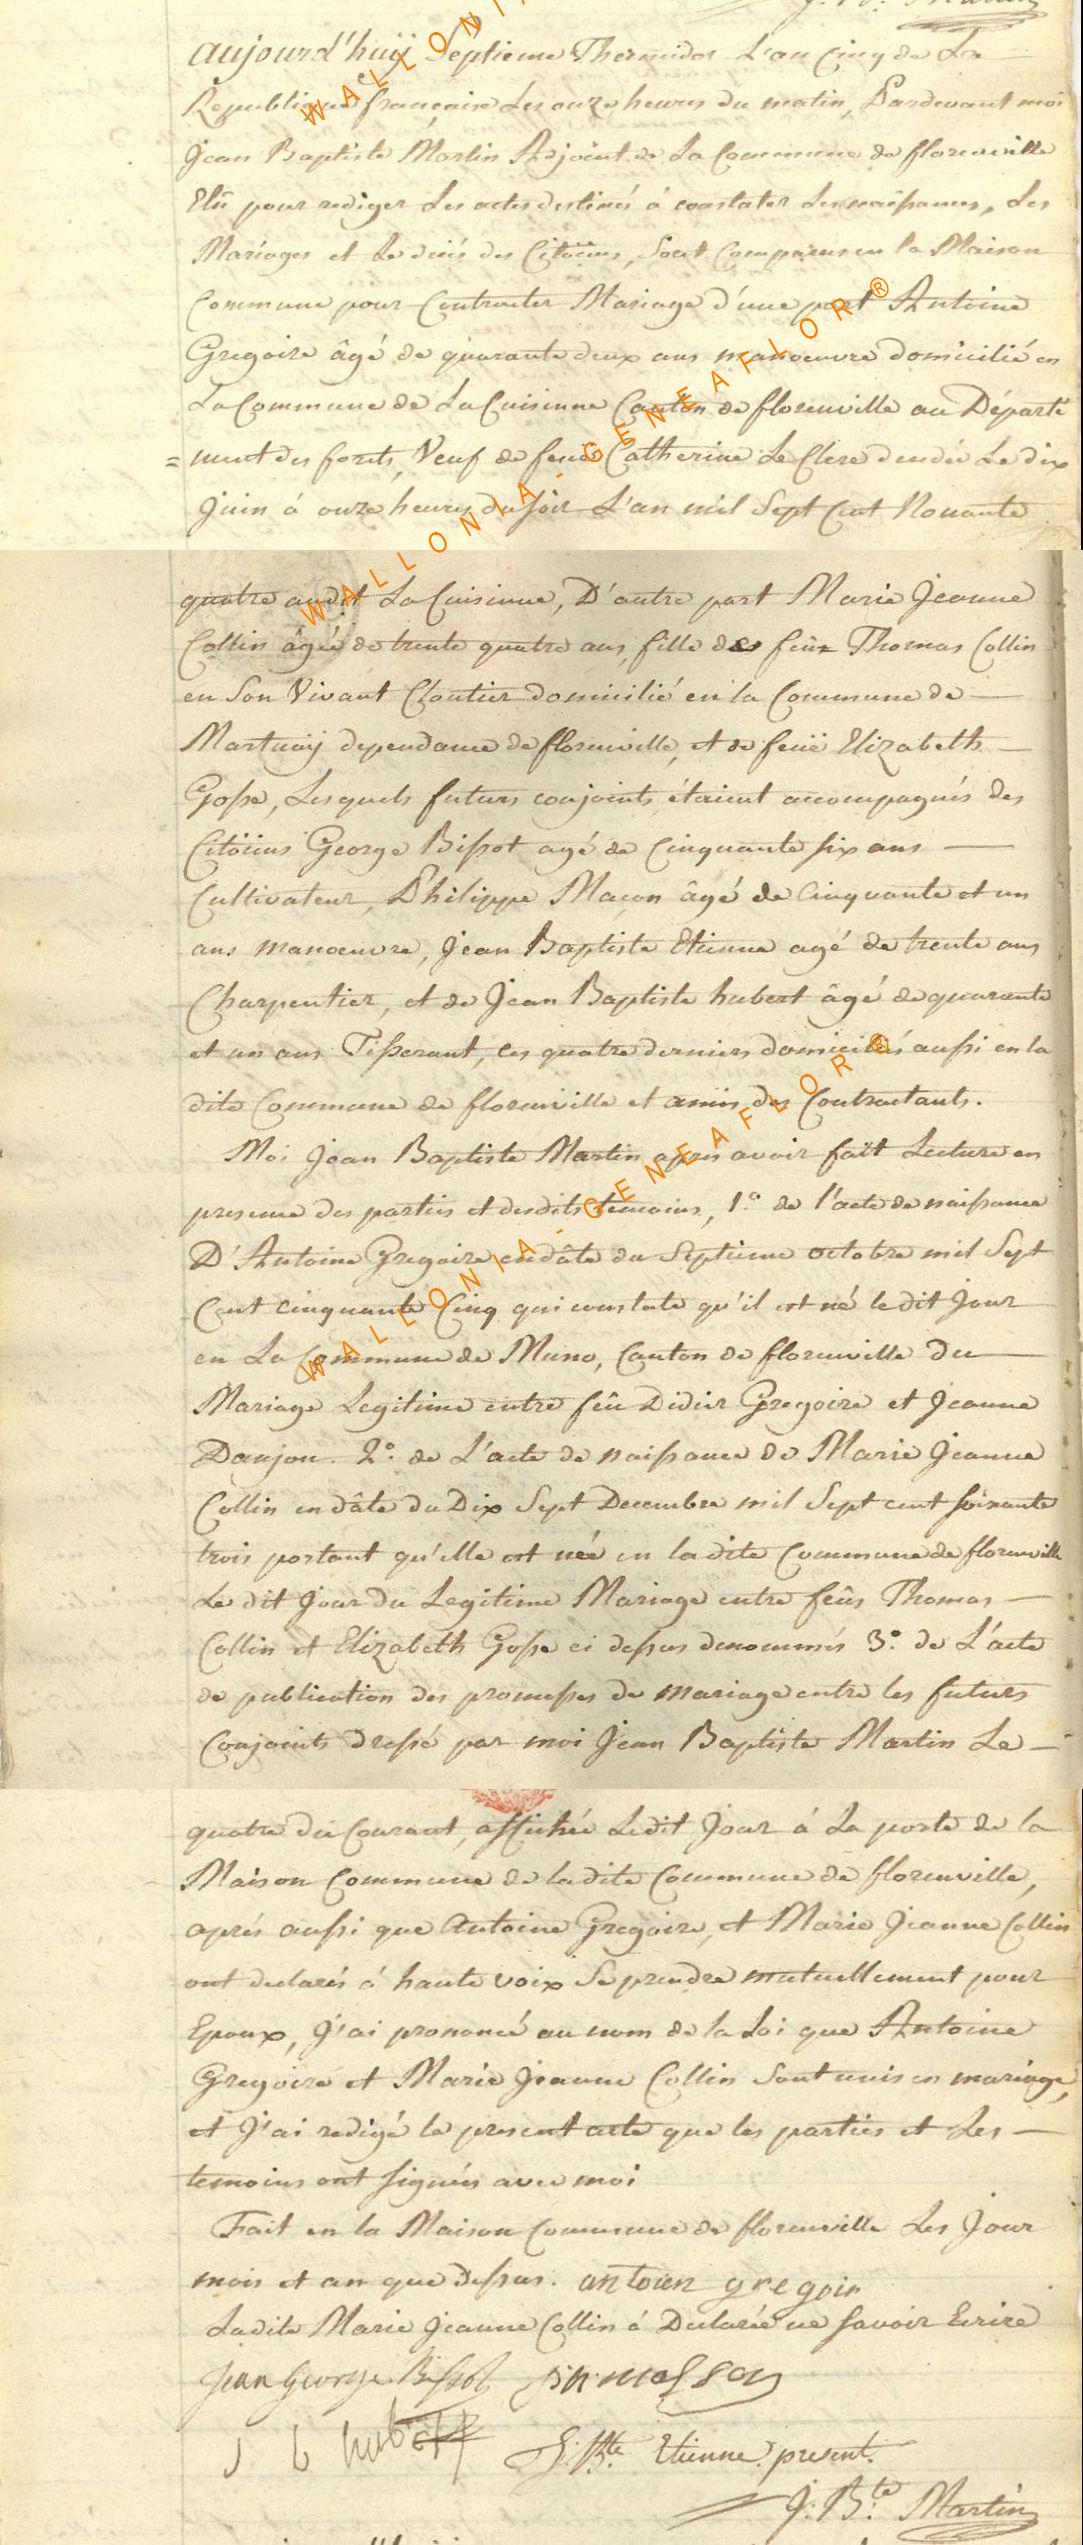 aujourd'huÿ Septieme Thermidor L'an Cinq de La
Republique française Les onze heures du matin, Pardevant moi
Jean Baptiste Martin Adjoint de La Commune de florenville
Elu pour rediger Les actes destinés á constater Les naissances, Les
Mariages et Le décès des Citöiens, Sont Comparus en la Maison
Commune pour Contracter Mariage d'une part Antoine
Gregoire âgé de quarante deux ans manoeuvre domicilié en
La Commune de La Cuisinne Canton de florenville au Départe
= ment des forets, Veuf de feue Catherine Le Clere decedée Le dix
Juin á onze heures du soir L'an mil Sept Cent Nonante
quatre audit La Cuisinne, D'autre part Marie Jeanne
Collin âgée de trente quatre ans, fille de feûx Thomas Collin
en Son Vivant Cloutier domicilié en la Commune de
Martuaÿ dependance de florenville, et de feuë Elizabeth
Gosse, Lesquels futurs conjoints étaient accompagnés des
Citöiens George Bissot agé de Cinquante six ans
Cultivateur, Philippe Maçon âgé de Cinquante et un
ans manoeuvre, Jean Baptiste Etienne agé de trente ans
Charpentier, et de Jean Baptiste hubert âgé de quarante
et un ans Tisserant, Ces quatre derniers domiciliés aussi en la
dite Commune de florenville et amis des Contractants.
Moi Jean Baptiste Martin apres avoir fait Lecture en
presence des parties et desdits temoins, 1.° de l'acte de naissance
D'Antoine Gregoire en dâte du Septieme octobre mil Sept
Cent cinquante Cinq qui constate qu'il est né le dit Jour
en La Commune de Muno, Canton de florenville du
Mariage Legitime entre feû Didier Gregoire et Jeanne
Danjou. 2.° de L'acte de naissance de Marie Jeanne
Collin en dâte du Dix Sept Decembre mil Sept cent soixante
trois portant qu'elle est née en la dite Commune de florenville
Le dit Jour du Legitime Mariage entre feûs Thomas
Collin et Elizabeth Gosse ci dessus denommés 3.° de L'acte
de publication des promesses de mariage entre les futurs
Conjoints Dressé par moi Jean Baptiste Martin Le
quatre du Courant, affichée Ledit Jour á La porte de la
Maison Commune de la dite Commune de florenville,
aprés aussi que Antoine Gregoire, et Marie Jeanne Collin
ont declarés á haute voix Se prendre mutuellement pour
Epoux, J'ai prononcé au nom de la Loi que Antoine
Gregoire et Marie Jeanne Collin Sont unis en mariage,
et J'ai redigé le present acte que les parties et Les
temoins ont signés avec moi
Fait en la Maison Commune de florenville Les Jour
mois et an que Dessus. antoien gregoir
Ladite Marie Jeanne Collin á Declarée ne savoir Ecrire
Jean George Bissot
J b hubert J. B.te Etienne present.
J. B.te Martin
WALLONIA - GENEAFLOR®
WALLONIA - GENEAFLOR®